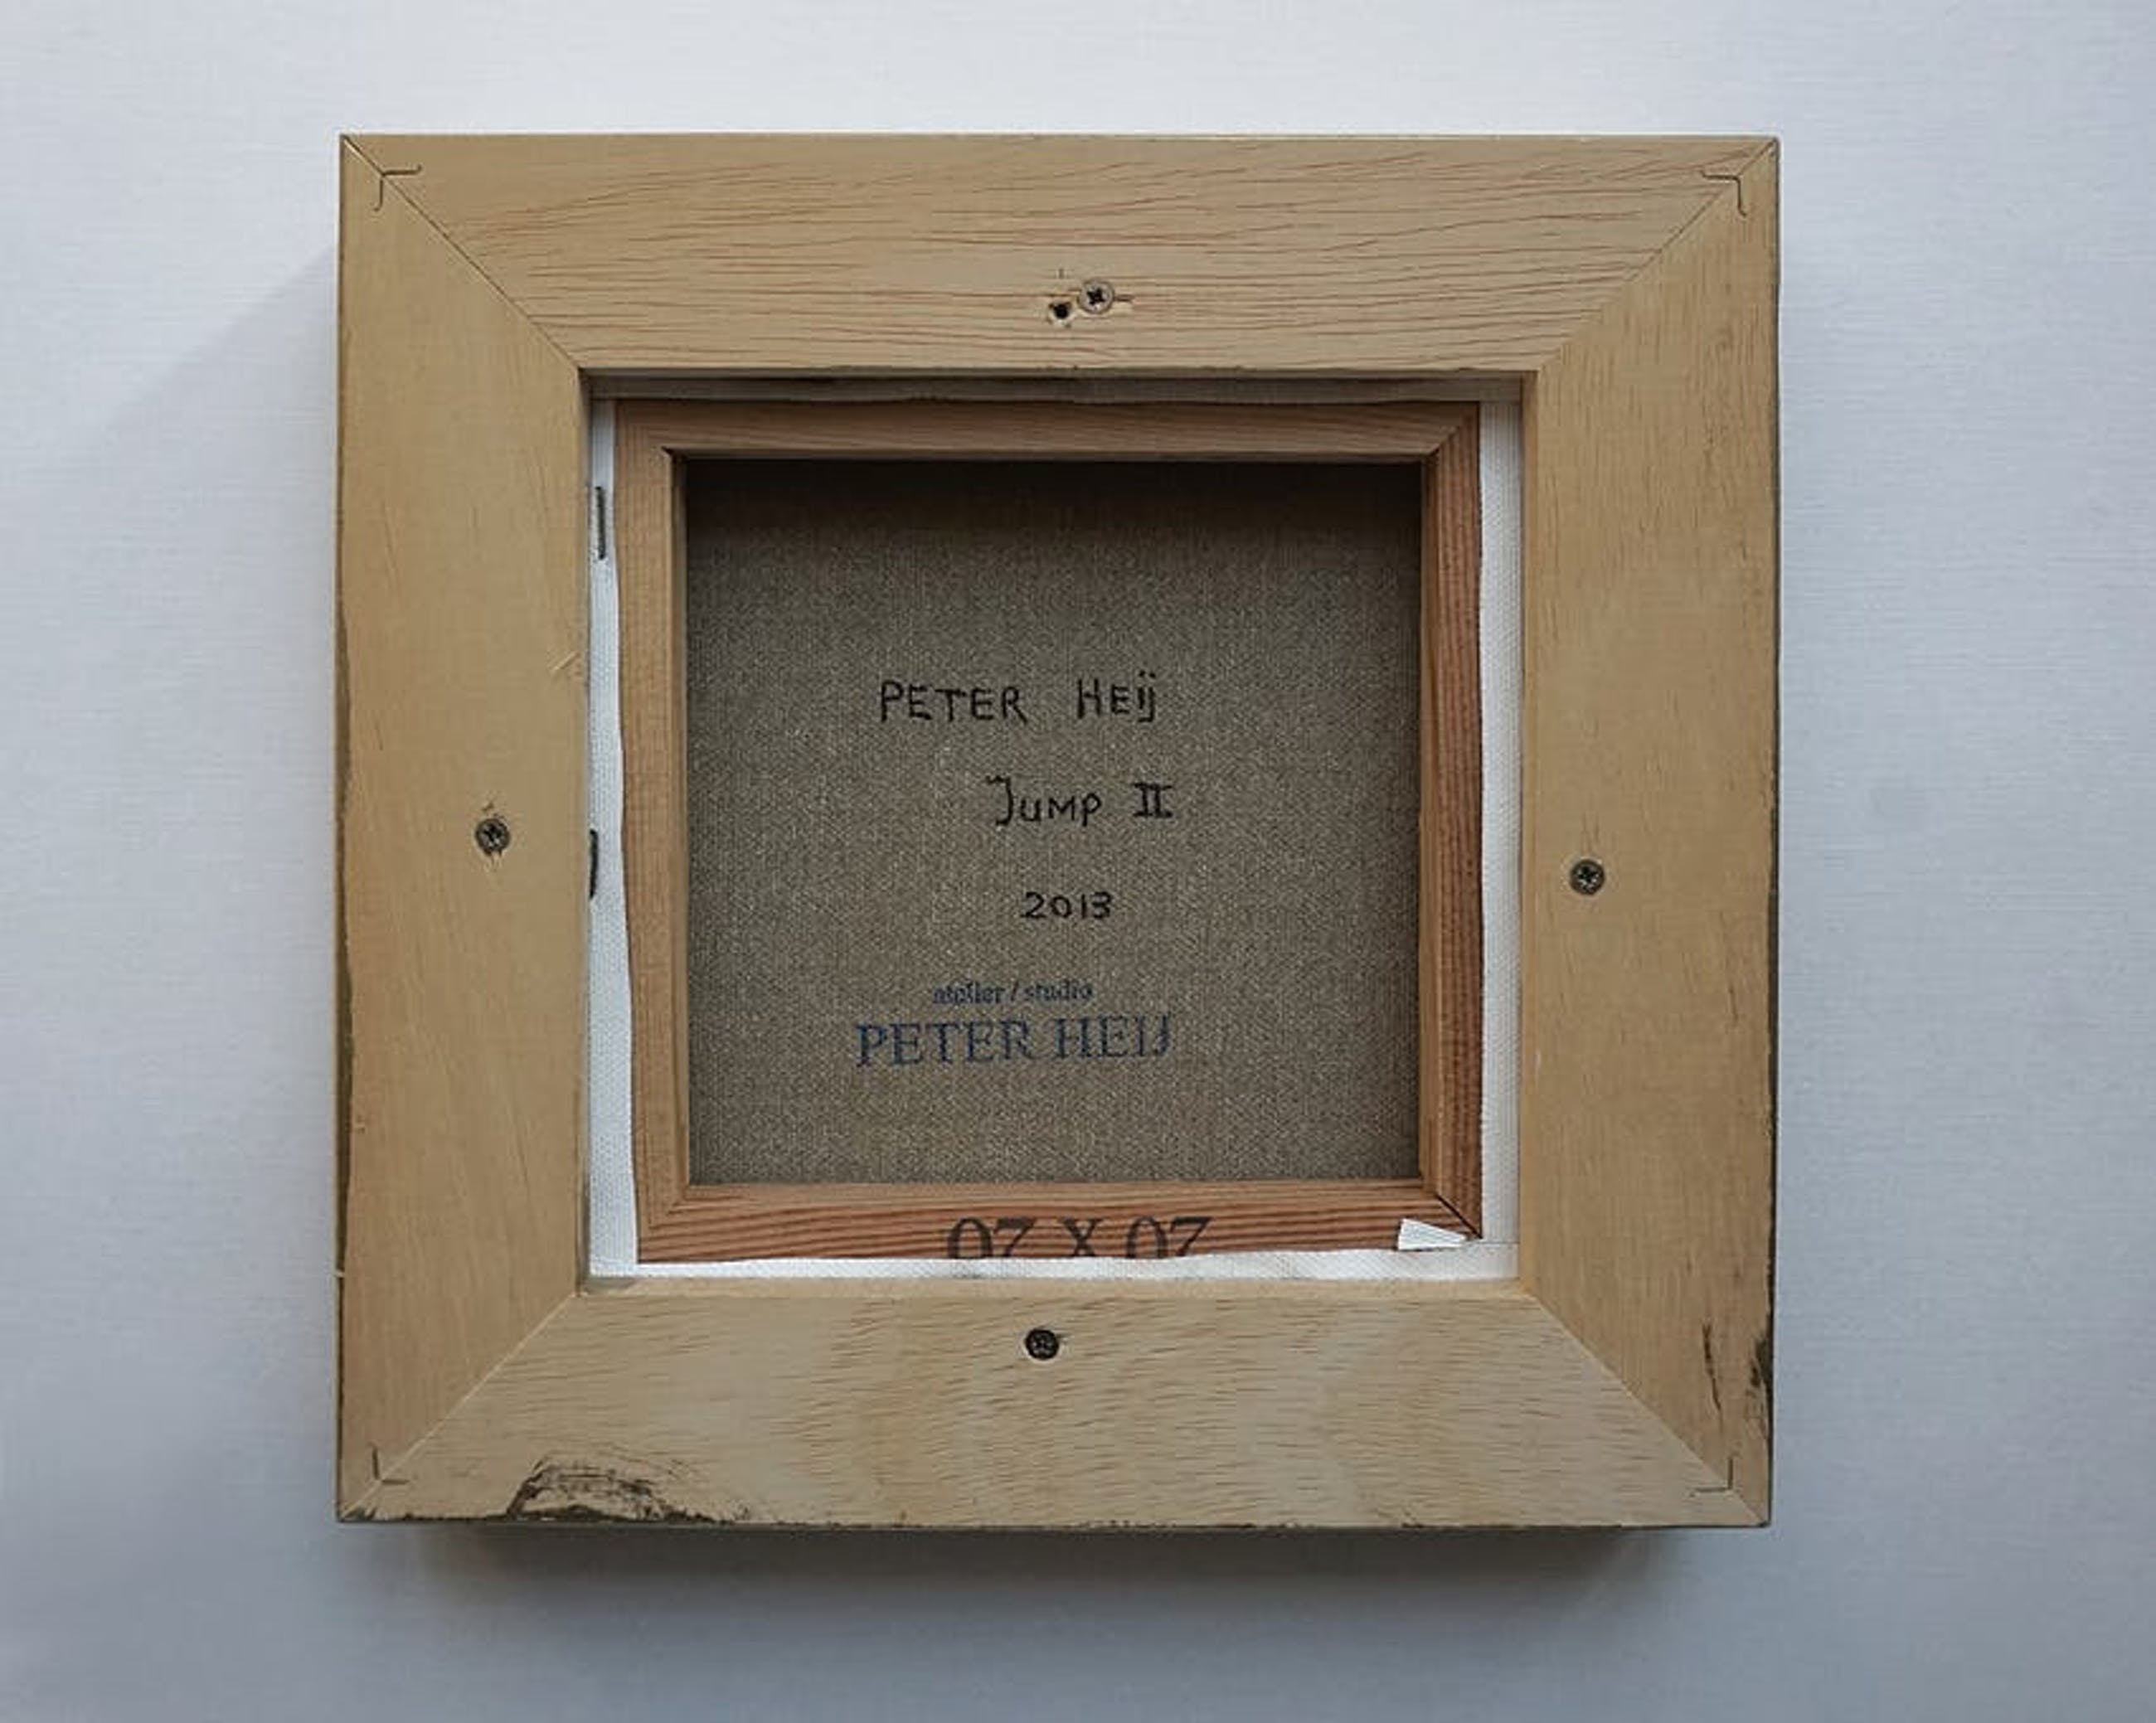 PETER HEIJ
JUMP II
2013
atelier / studio
PETER HEIJ
07 X 07